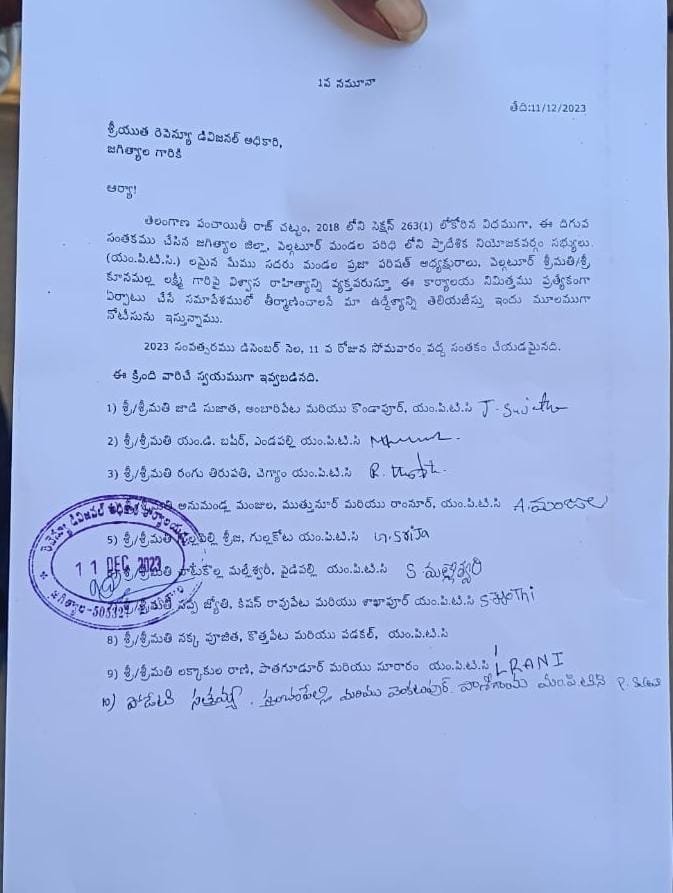 1వ నమూనా
తేది:11/12/2023
శ్రీయుత రెవెన్యూ డివిజనల్ అధికారి,
జగిత్యాల గారికి
ఆర్యా!
తెలంగాణ పంచాయితీ రాజ్ చట్టం, 2018 లోని సెక్షన్ 263(1) లోకోరిన విధముగా, ఈ దిగువ
సంతకము చేసిన జగిత్యాల జిల్లా, వెల్గటూర్ మండల పరిధి లోని ప్రాదేశిక నియోజకవర్గం సభ్యులు
(యం.పి.టి.సి.) లమైన మేము సదరు మండల ప్రజా పరిషత్ అధ్యక్షురాలు, వెల్గటూర్ శ్రీమతి/శ్రీ
కూనమల్ల లక్ష్మీ గారిపై విశ్వాస రాహిత్యాన్ని వ్యక్తపరుస్తూ ఈ కార్యాలయ నిమిత్తము ప్రత్యేకంగా
ఏర్పాటు చేసే సమావేశములో తీర్మాణించాలనే మా ఉద్దేశ్యాన్ని తెలియజేస్తు ఇందు మూలముగా
నోటీసును ఇస్తున్నాము.
2023 సంవత్సరము డిసెంబర్ నెల, 11 వ రోజున సోమవారం వద్ద సంతకం చేయడమైనది.
ఈ క్రింది వారిచే స్వయముగా ఇవ్వబడినది.
1) శ్రీ/శ్రీమతి జాడి సుజాత, అంబారిపేట మరియు కొండాపూర్, యం.పి.టి.సి J. Sujatha
2) శ్రీ/శ్రీమతి యం.డి. బషీర్, ఎండపల్లి యం.పి.టి.సి
3) శ్రీ/శ్రీమతి రంగు తిరుపతి, చెగ్యాం యం.పి.టి.సి
శ్రీ/శ్రీమతి అనుమండ్ల మంజుల, ముత్తునూర్ మరియు రాంనూర్, యం.పి.టి.సి A. మంజుల
5) శ్రీ/శ్రీమతి శ్రీజ, గుల్లకోట యం.పి.టి.సి G. Srija
శ్రీ/శ్రీమతి మల్లీశ్వరీ, పైడిపల్లి యం.పి.టి.సి S మల్లీశ్వరి
శ్రీ/శ్రీమతి సప్ప జ్యోతి, కిషన్ రావుపేట మరియు శాఖాపూర్ యం.పి.టి.సి S Jyothi
8) శ్రీ/శ్రీమతి నక్క పూజిత, కొత్తపేట మరియు పడకల్, యం.పి.టి.సి
9) శ్రీ/శ్రీమతి లక్కాకుల రాణి, పాతగూడూర్ మరియు సూరారం యం.పి.టి.సి L RANI
10) పోడేటి సత్తమ్మ. మరియు వెంకటాపూర్.
రెవెన్యూ డివిజనల్ అధికారి కార్యాలయము
11 DEC 2023
జగిత్యాల-505327